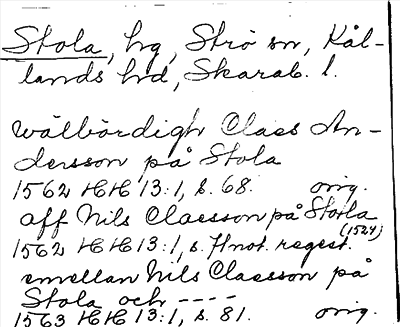 Stola, hg, Strö sn, Kål-
lands hd, Skarab. l.
wälbördigh Claes An-
dersson på Stola
1562 HH 13:1, s. 68. orig.
aff Nils Claesson på Stoola
(1524)
1562 HH 13:1, s. 7 not. regest.
emellan Nils Claesson på
Stola och ----
1563 HH 13:1, s. 81. orig.